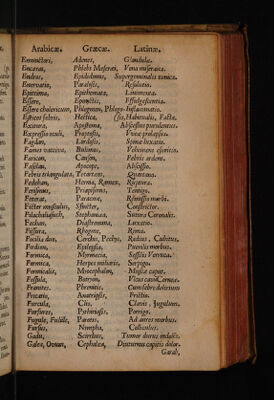 Arabicæ. Græcæ. Latinæ.
Emunctori, Adenes, Glandulæ.
Encaran, Phlebs Meseraei, Vena miseraica.
Endeus, Epididimis, Supergeminalis tunica.
Enervatio, Paralysis, Resolutio.
Epitima, Epithemata, Linimenta.
Essere, Epinyctis,
Essere cholericum, Phlegmon, Phlego-Inflammatio.
Esticos febris, Hectica,
Exitura, Apostema, Abscessus
Expressio oculi, Proptosis,
Fagdan, Lordosis, Spina
Fames vaccina, Bulimos, Vehemens esuritio.
Faricon, Causon, Febris ardens.
Fasalon, Apocope, Abscissio.
Febris triangulata, Tetarteon, Quartana.
Fedehan, Herma, Ramex, Ruptura.
Fenismon, Priapismus, Tentigo.
Feterat, Paracme, Remissio morbi.
Fictor Sfincter, Constrictor.
Falachusasich, Stephanæa, Sutura Coronalis.
Fechan, Diastremma, Luxatio.
Fissura, Rhogme, Rima.
Focilia duo, Cercis, Pechys, Radius, Cubitus.
Fordan, Epilepsia, Puerilis morbus.
Formica, Myrmecia, Sessilis Verruca.
Formica, Herpes miliaris, Serpigo.
Formicalis, Myocephalon, Muscæ caput.
Fossula, Botryon, Vicus cavis Corneæ.
Frantes, Phrenitis, Cum febre delirium.
Fricatio, Anatripsis, Frictio.
Furcula, Clis, Clavis, Jugulum.
Furfures, Pythiriasis, Porrigo.
Fugule, Fusille, Parotis, Ad aures morbus.
Fursus, Nympha, Colliculus.
Gadu, Scirrhus, Tumor durus indolens.
Galea, Ovum, Cephalea, Diuturnus capitis dolor.
Garab,